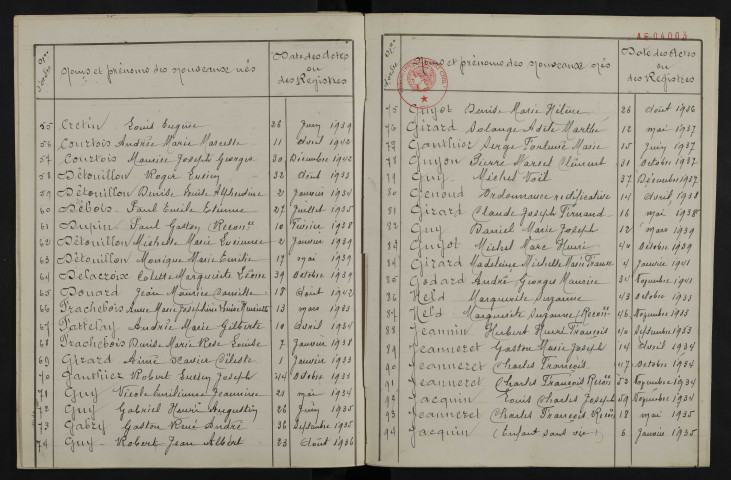 Nos d'ordre Noms et prénoms des nouveaux nés Date des actes ou des Registres
55 Cretin Louis Eugène 28 Juin 1939
56 Courtois Andrée Marie Marcelle 11 Avril 1942
57 Courtois Maurice Joseph Georges 30 Décembre 1942
58 Détouillon Roger Lucien 32 Août 1933
59 Détouillon Denise Emile Alphonsine 2 Janvier 1934
60 Débois Paul Emile Etienne 27 Juillet 1935
61 Dupin Paul Gaston Reconce 10 Février 1938
62 Détouillon Michelle Marie Lucienne 2 Janvier 1939
63 Détouillon Monique Marie Emilie 17 mai 1939
64 Delacroix Colette Marguerite Léone 39 Octobre 1939
65 Douard Jean Maurice Camille 18 Août 1942
66 Frachebois Anne Marie Joséphine Louise Henriette 13 mars 1933
67 Fattelay Andrée Marie Gilberte 10 Avril 1934
68 Frachebois Denise Marie Rose Louise 7 Janvier 1938
69 Girard Aimé Xavier Céleste 1 Janvier 1933
70 Gauthier Robert Lucien Joseph 44 Octobre 1933
71 Guy Nicole Emilienne Jeannine 21 mai 1934
72 Guy Gabriel Henri Augustin 26 Juin 1935
73 Gabry Gaston René André 36 Septembre 1935
74 Guy Robert Jean Albert 23 Août 1936
AE 04003
Nos d'ordre Noms et prénoms des nouveaux nés Date des Actes ou des Registres
75 Guyot Denise Marie Hélène 26 Août 1936
76 Girard Solange Adèle Marthe 12 mai 1937
77 Gauthier Serge Fortunée Marie 15 Juin 1937
78 Guyon Pierre Marcel Clément 31 Octobre 1937
79 Guy Michel Noël 37 Décembre 1937
80 Genoud Ordonnance rectificative 14 Avril 1938
81 Girard Claude Joseph Fernand 16 mai 1938
82 Guy Daniel Marie Joseph 12 mars 1939
83 Guyot Michel Marc Henri 40 Octobre 1939
84 Girard Madeleine Michelle Marie France 4 Janvier 1941
85 Godard André Georges Maurice 34 Novembre 1941
86 Held Marguerite Suzanne 43 Octobre 1933
87 Held Marguerite Suzanne (Recon 46 Novembre 1933
88 Jeannin Hubert Henri François 40 Septembre 1933
89 Jeanneret Gaston Marie Joseph 14 Avril 1934
90 Jeanneret Charles François 47 Octobre 1934
91 Jeanneret Charles François Recon 53 Novembre 1934
92 Jacquin Louis Charles Joseph 59 Novembre 1934
93 Jeanneret Charles François Recon 18 mai 1935
94 Jacquin (Enfant sans vie) 6 Janvier 1935